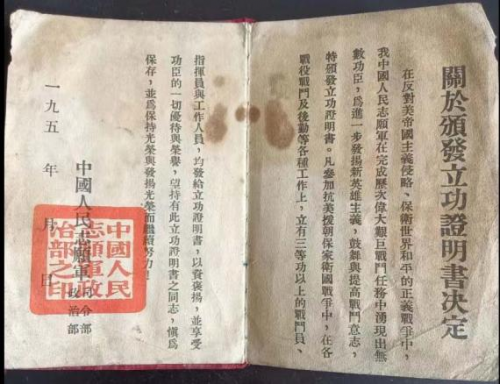 關於頒發立功證明書决定
在反對美帝國主義侵略、保衛世界和平的正義戰爭中，
我中國人民志願軍在完成歷次偉大艱巨戰鬥任務中湧現出無
數功臣，爲進一步發揚新英雄主義，鼓舞與提高戰鬥意志，
特頒發立功證明書。凡參加抗美援朝保家衛國戰爭中，在各
戰役戰鬥及後勤等各種工作上，立有三等功以上的戰鬥員、
指揮員與工作人員，均發給立功證明書，以資褒揚，並享受
功臣的一切優待與榮譽，望持有此立功證明書之同志，愼爲
保存，並爲保持光榮與發揚光榮而繼續努力！
中國人民志願軍
司令部
政治部
一九五 年 月 日
中國人民志願軍政治部之印